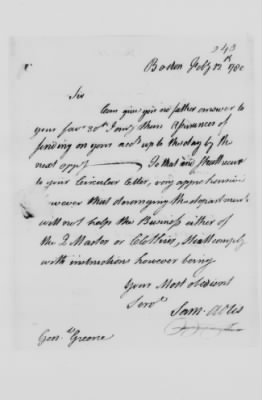 343
Boston Feby 12th 1780
Sir
Can give you no father answer to
your favr 30th than Assurances of
sending on your acct up to this day by the
next oppy To that and
to your Circular Letter, very apprehensive
however that deranging the department
will not help the Business either of
the Q Master or Clothier, Shall comply
with instructions however being
Your Most obedient
Servt
Sam. Otis
Genl Greene